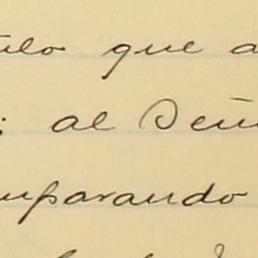 ulo que a
; al Señ
mparando